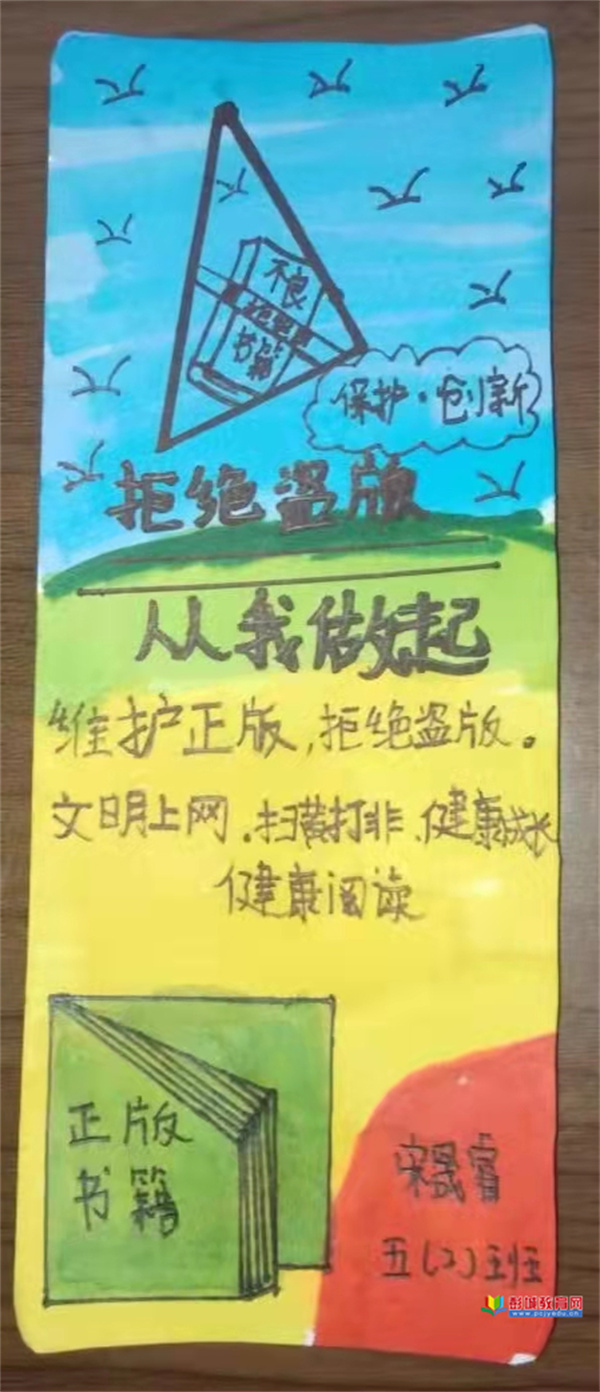 不良
拒绝
书籍
保护·创新
拒绝盗版
从我做起
维护正版,拒绝盗版。
文明上网.扫黄打非、健康成长
健康阅读
正版
书籍
宋晟睿
五(2)班
彭城教育网
www.pcjyedu.cn